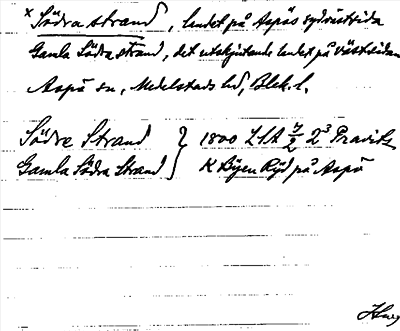 × Södra strand, landet på Aspös sydvästsida
Gamla Södra strand, det utskjutande landet på västsidan
Aspö sn, Medelstads hd, Blek. l.
Södre Strand } 1800 LSA 7/2 2³ Pravitz
Gamla Södra Strand } K Byen Ryd på Aspö